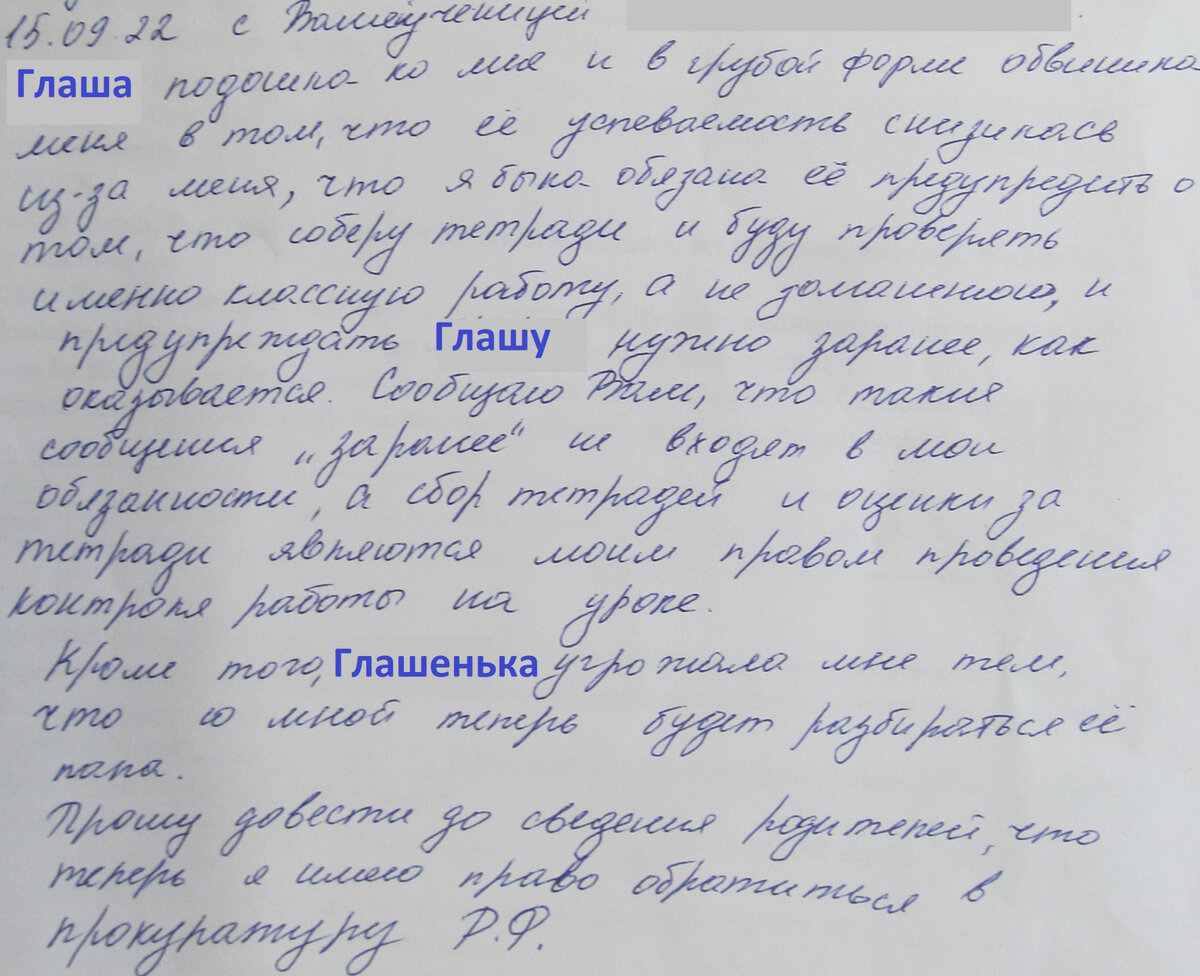 15.09.22 с Вашей ученицей
Глаша подошла ко мне и в грубой форме обвинила
меня в том, что её успеваемость снизилась
из-за меня, что я была обязана её предупредить о
том, что соберу тетради и буду проверять
именно классную работу, а не домашнюю, и
предупреждать Глашу нужно заранее, как
оказывается. Сообщаю Вам, что такие
сообщения „заранее“ не входят в мои
обязанности, а сбор тетрадей и оценки за
тетради являются моим правом проведения
контроля работы на уроке.
Кроме того, Глашенька угрожала мне тем,
что со мной теперь будет разбираться её
папа.
Прошу довести до сведения родителей, что
теперь я имею право обратиться в
прокуратуру Р.Ф.